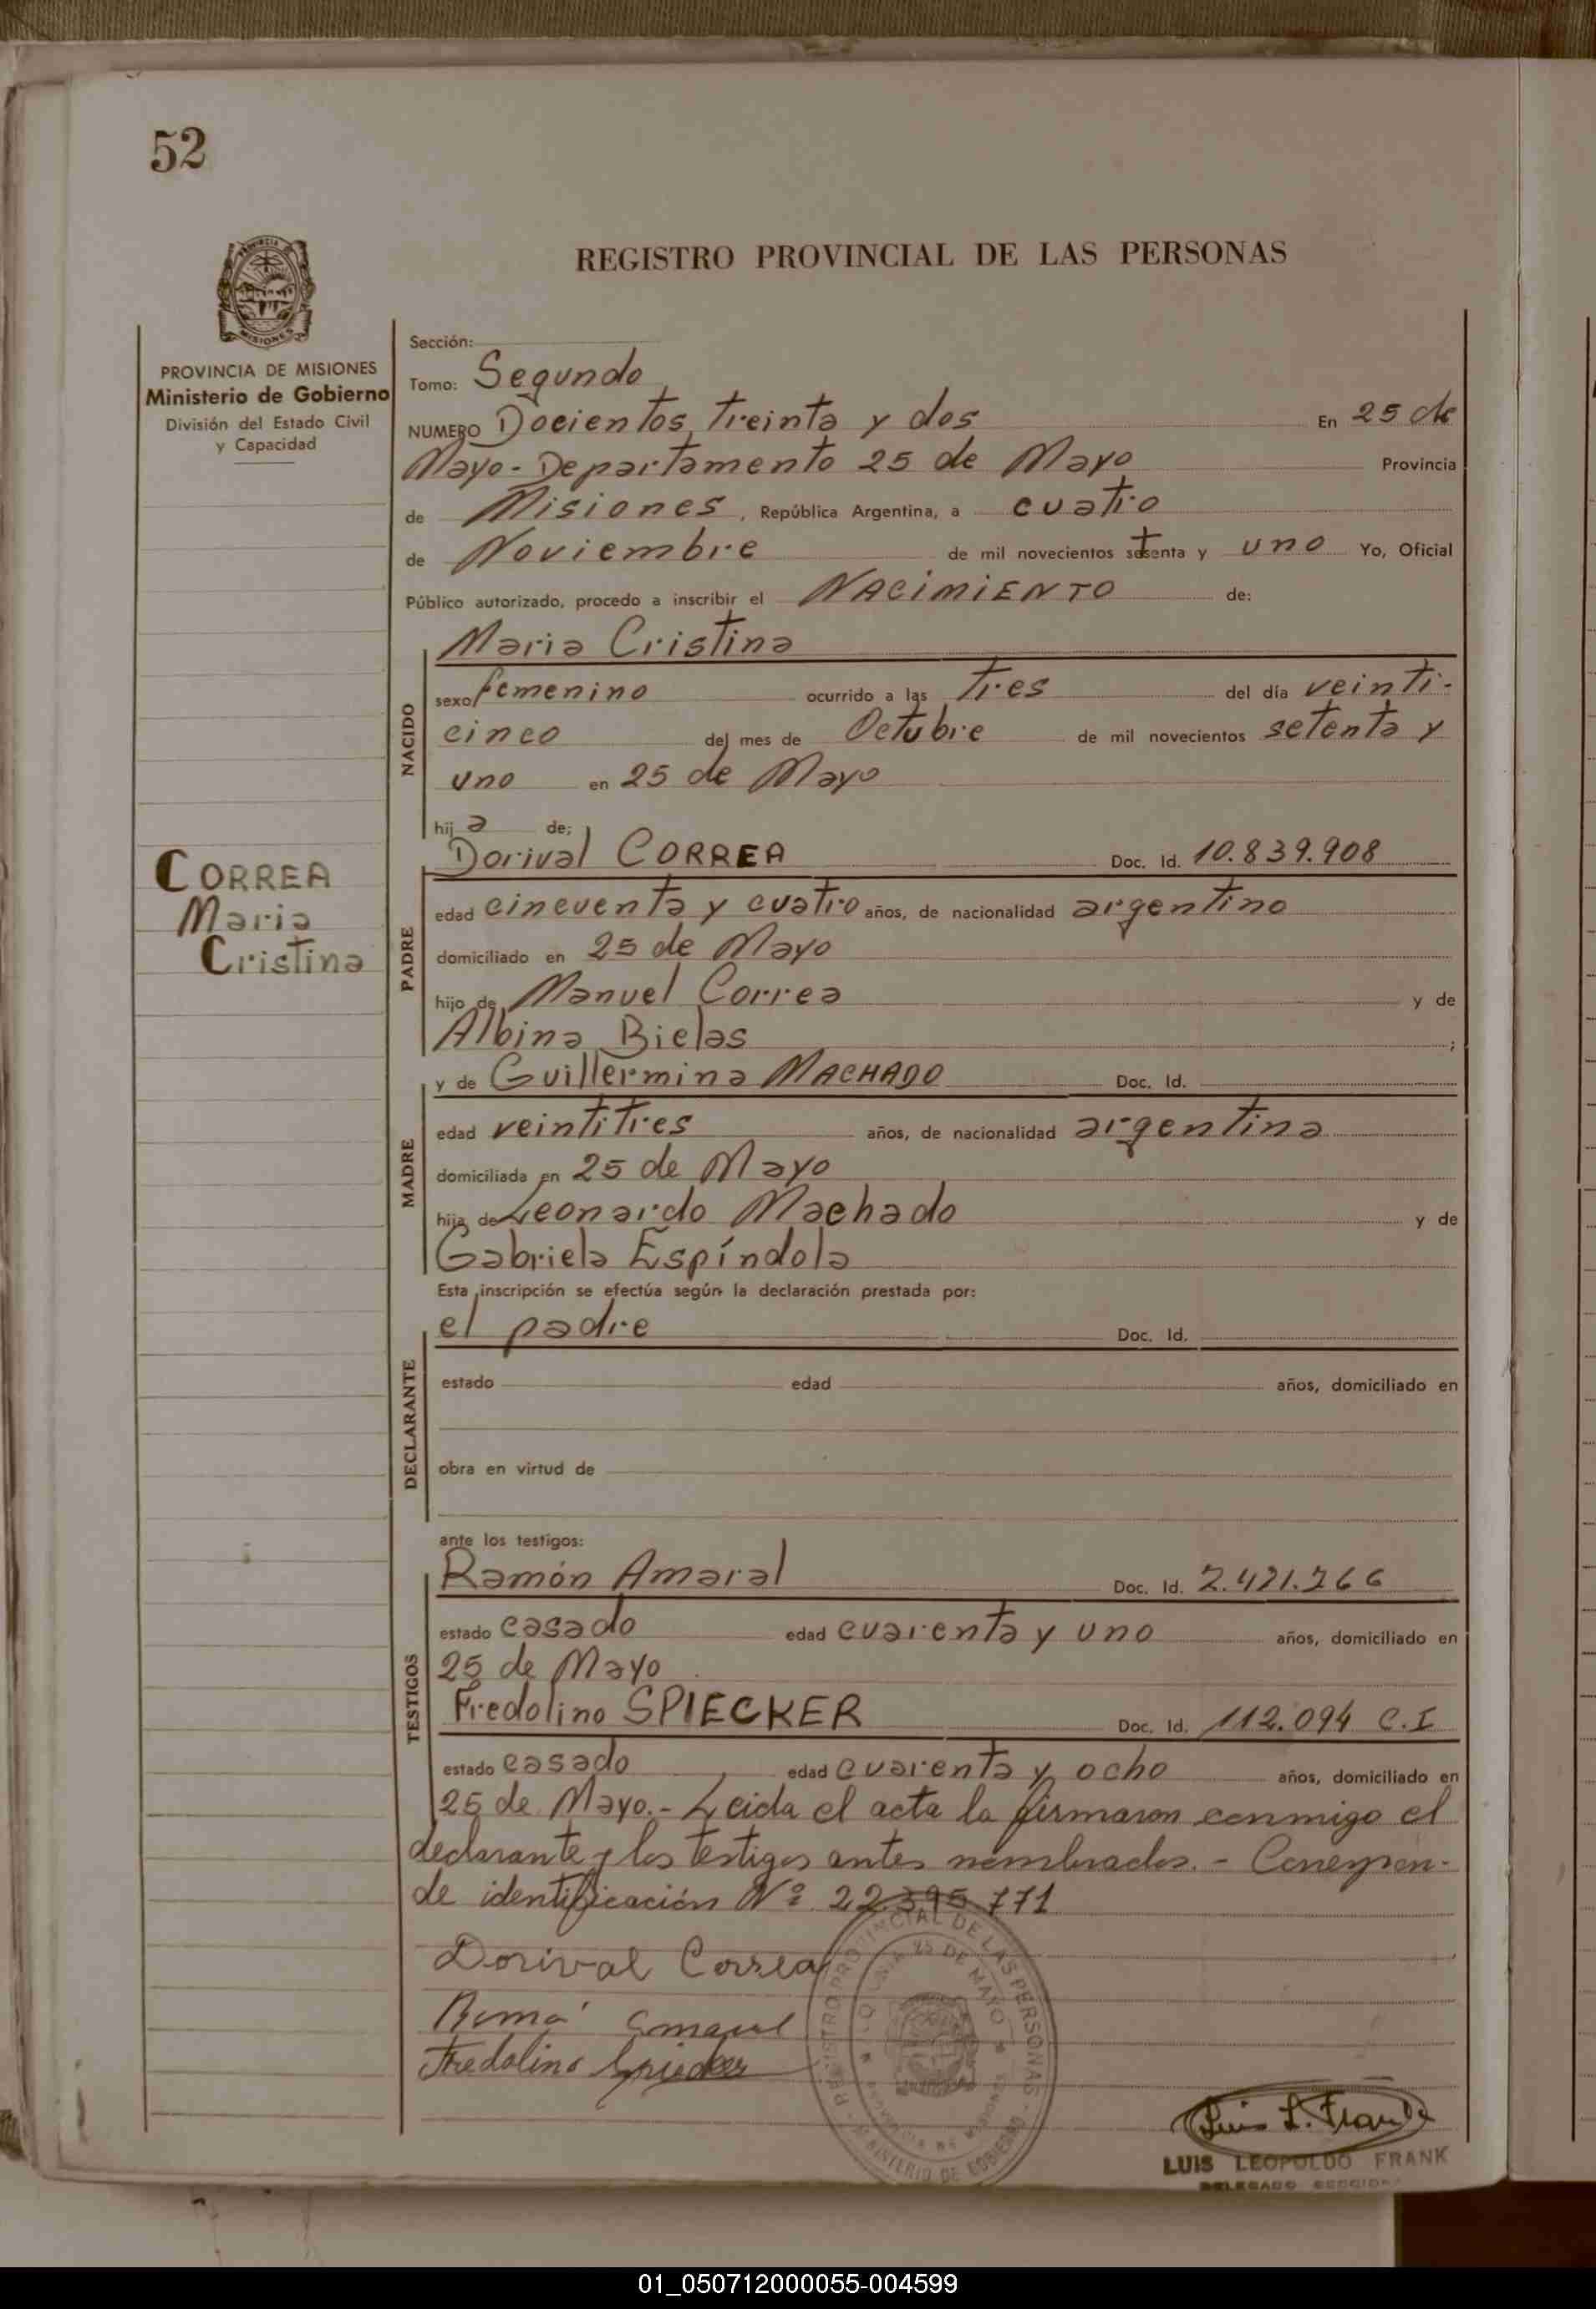 52
REGISTRO PROVINCIAL DE LAS PERSONAS
MISIONES
PROVINCIA DE MISIONES
Ministerio de Gobierno
División del Estado Civil
y Capacidad
CORREA
Maria
Cristina
Sección:
Tomo: Segundo
NUMERO Docientos treinta y dos En 25 de
Mayo - Departamento 25 de Mayo Provincia
de Misiones, República Argentina, a cuatro
de Noviembre de mil novecientos setenta y uno Yo, Oficial
Público autorizado, procedo a inscribir el NACIMIENTO de:
NACIDO
Maria Cristina
sexo femenino ocurrido a las tres del día veinti-
cinco del mes de Octubre de mil novecientos setenta y
uno en 25 de Mayo
hija de;
PADRE
Dorival CORREA Doc. Id. 10.839.908
edad cincuenta y cuatro años, de nacionalidad argentino
domiciliado en 25 de Mayo
hijo de Manuel Correa y de
Albina Bielas ;
MADRE
y de Guillermina MACHADO Doc. Id.
edad veintitres años, de nacionalidad argentina
domiciliada en 25 de Mayo
hija de Leonardo Machado y de
Gabriela Espíndola
Esta inscripción se efectúa según la declaración prestada por:
DECLARANTE
el padre Doc. Id.
estado edad años, domiciliado en
obra en virtud de
ante los testigos:
TESTIGOS
Ramón Amaral Doc. Id. 2.421.266
estado casado edad cuarenta y uno años, domiciliado en
25 de Mayo
Fredolino SPIECKER Doc. Id. 112.094 C.I
estado casado edad cuarenta y ocho años, domiciliado en
25 de Mayo.- Leida el acta la firmaron conmigo el
declarante y los testigos antes nombrados.- Correspon-
de identificación Nº 22.395.771
Dorival Correa
Fredolino Spiecker
REGISTRO PROVINCIAL DE LAS PERSONAS - MINISTERIO DE GOBIERNO
25 DE MAYO
Luis L. Frank
LUIS LEOPOLDO FRANK
DELEGADO
01_050712000055-004599